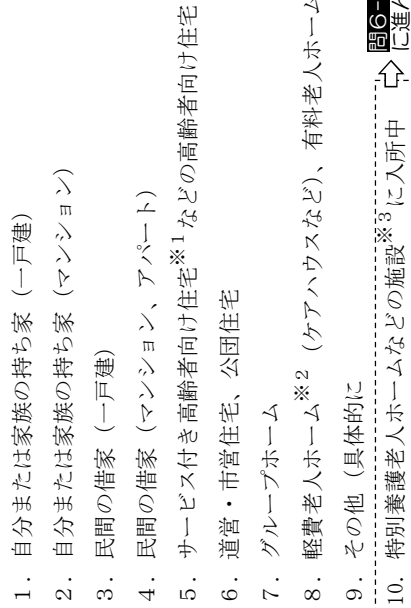 1. 自分または家族の持ち家（一戸建）
2. 自分または家族の持ち家（マンション）
3. 民間の借家（一戸建）
4. 民間の借家（マンション、アパート）
5. サービス付き高齢者向け住宅※1などの高齢者向け住宅
6. 道営・市営住宅、公団住宅
7. グループホーム
8. 軽費老人ホーム※2（ケアハウスなど）、有料老人ホーム
9. その他（具体的に
10. 特別養護老人ホームなどの施設※3に入所中
問6-
に進